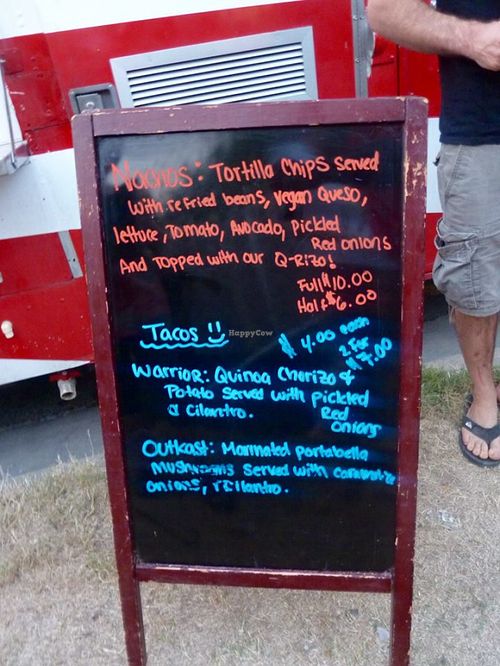 Nachos: Tortilla Chips served
with refried beans, vegan Queso,
lettuce, Tomato, Avocado, pickled
Red onions
And Topped with our Q-Rizo!
Full $10.00
Half $6.00
HappyCow
Tacos
$4.00 each
2 for
$7.00
Warrior: Quinoa Chorizo &
Potato served with pickled
& Cilantro. Red
onions
Outkast: Marinated portabella
mushrooms served with
onions, & Cilantro.